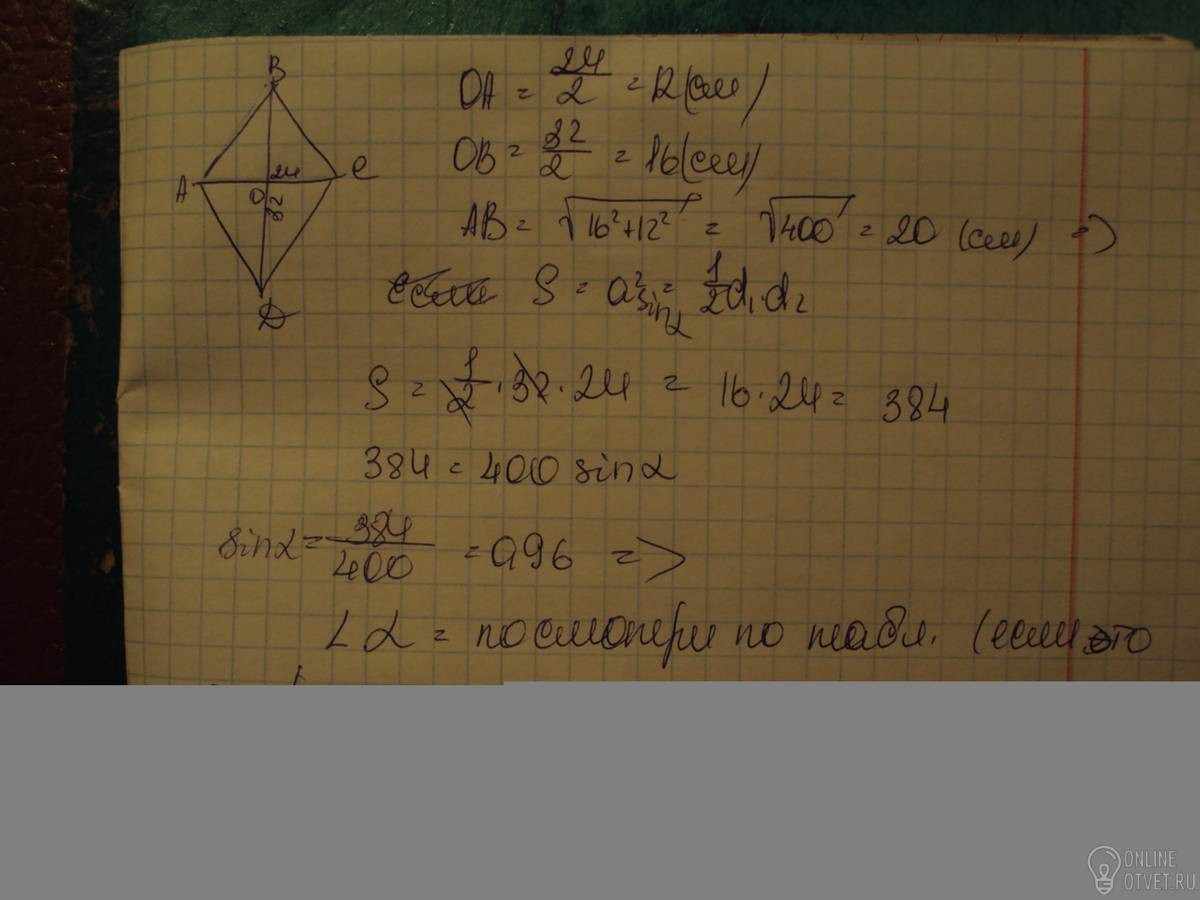 B
A
24
C
O
32
D
OA = 24/2 = 12 (см)
OB = 32/2 = 16 (см)
AB = √16²+12² = √400 = 20 (см) =>
если S = a² sinα = 1/2 d₁·d₂
S = 1/2 · 32 · 24 = 16 · 24 = 384
384 = 400 sinα
sinα = 384/400 = 0,96 =>
∠α = посмотри по табл. (если это
ONLINE
OTVET.RU